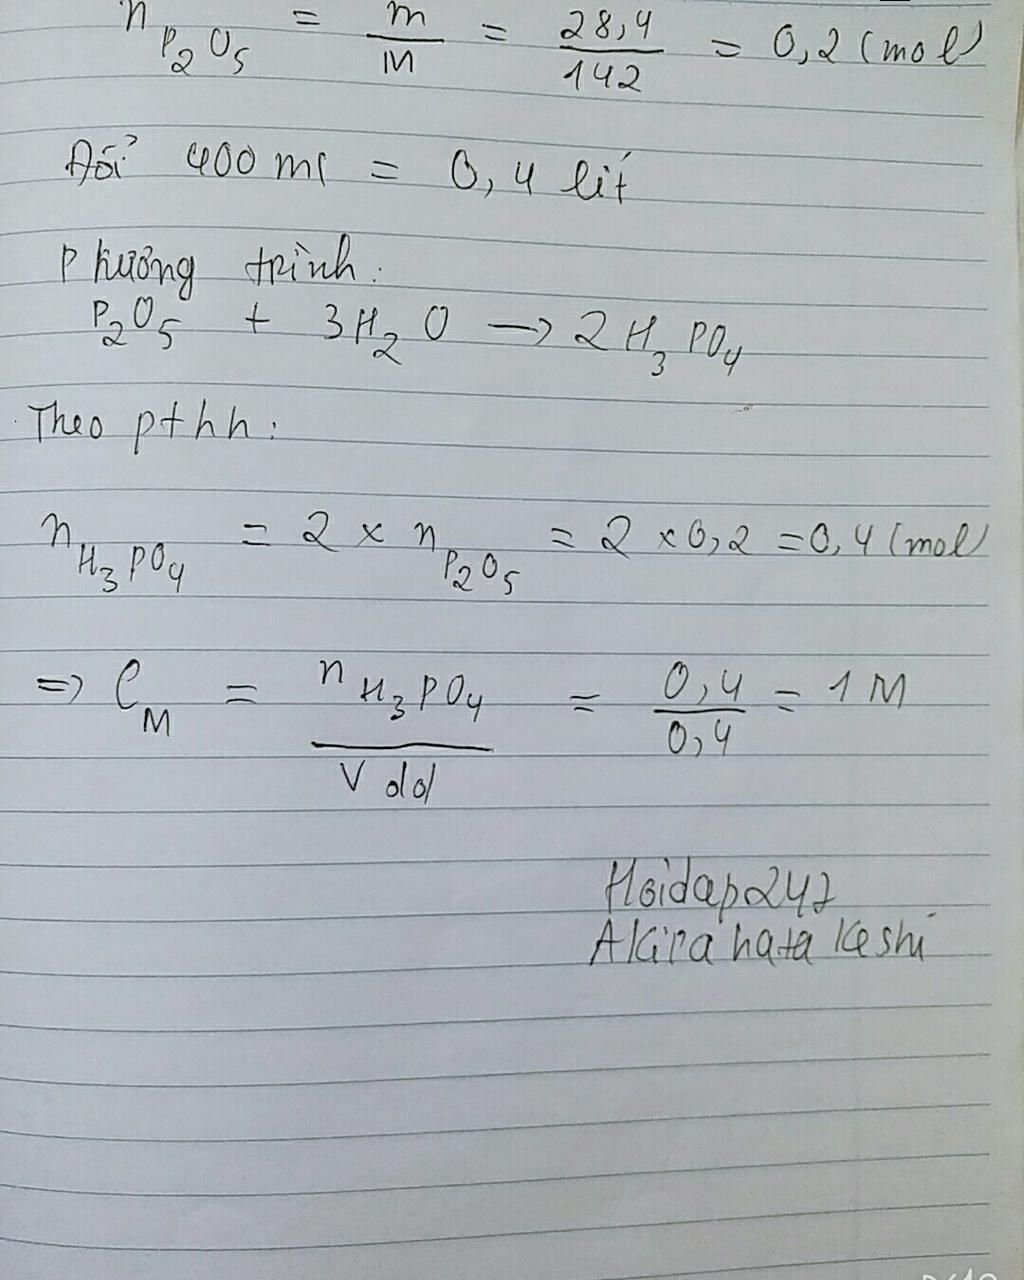 n P₂O₅ = m/M = 28,4/142 = 0,2 (mol)
Đổi 400 ml = 0,4 lít
Phương trình:
P₂O₅ + 3H₂O → 2H₃PO₄
Theo pthh:
n H₃PO₄ = 2 × n P₂O₅ = 2 × 0,2 = 0,4 (mol)
=> C_M = n H₃PO₄ / V dd = 0,4/0,4 = 1 M
Hoidap247
Akira hata keshi